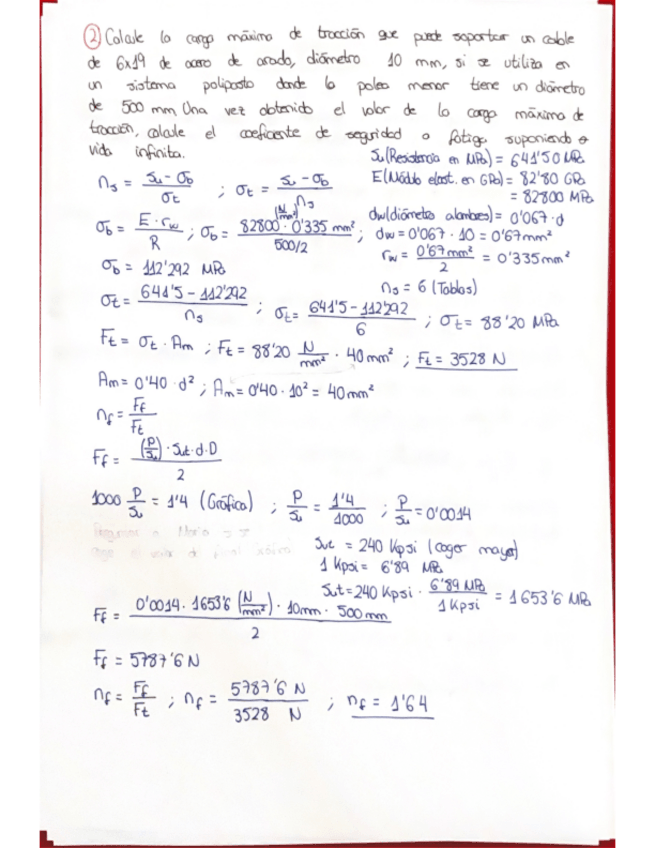 ② Calcule la carga máxima de tracción que puede soportar un cable
de 6x19 de acero de arado, diámetro 10 mm, si se utiliza en
un sistema polipasto donde la polea menor tiene un diámetro
de 500 mm. Una vez obtenido el valor de la carga máxima de
tracción, calcule el coeficiente de seguridad a fatiga suponiendo
vida infinita.
Su (Resistencia en MPa) = 641'50 MPa
E (Módulo elast. en GPa) = 82'80 GPa
= 82800 MPa
ns = (Su - σb)/σt ; σt = (Su - σb)/ns
dw (diámetro alambres) = 0'067·d
σb = (E·rw)/R ; σb = (82800 (N/mm²) · 0'335 mm²)/(500/2) ; dw = 0'067 · 10 = 0'67 mm²
rw = (0'67 mm²)/2 = 0'335 mm²
σb = 112'292 MPa
ns = 6 (Tablas)
σt = (641'5 - 112'292)/ns ; σt = (641'5 - 112'292)/6 ; σt = 88'20 MPa
Ft = σt · Am ; Ft = 88'20 N/mm² · 40 mm² ; Ft = 3528 N
Am = 0'40 · d² ; Am = 0'40 · 10² = 40 mm²
nf = Ff/Ft
Ff = ((P/Su) · Sut · d · D)/2
1000 P/Su = 1'4 (Gráfica) ; P/Su = 1'4/1000 ; P/Su = 0'0014
Sut = 240 Kpsi (coger mayor)
1 Kpsi = 6'89 MPa
Sut = 240 Kpsi · (6'89 MPa)/(1 Kpsi) = 1653'6 MPa
Ff = (0'0014 · 1653'6 (N/mm²) · 10mm · 500 mm)/2
Ff = 5787'6 N
nf = Ff/Ft ; nf = (5787'6 N)/(3528 N) ; nf = 1'64